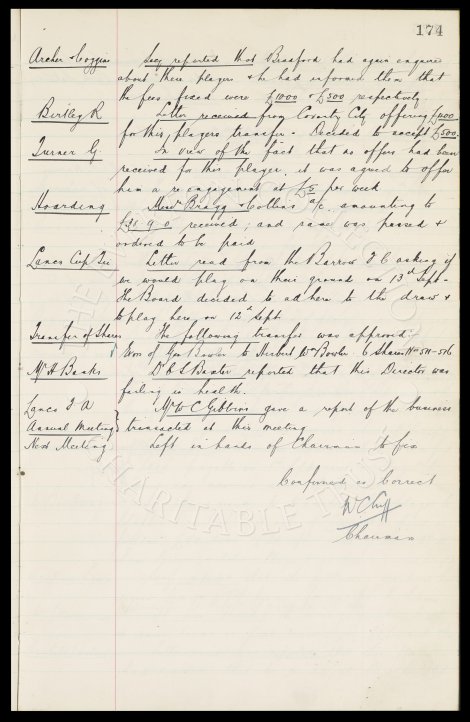 174
Archer & Coggins Secy reported that Bradford had again enquired
about these players & he had informed them that
the fees fixed were £1000 & £500 respectively
Birtley R Letter received from Coventry City offering £400
for this players transfer - Decided to accept £500.
Turner G In view of the fact that no offers had been
received for this player, it was agreed to offer
him a re engagement at £5 per week
Hoarding Messrs Bragg & Collins a/c amounting to
£31 9 0 received; and same was passed &
ordered to be paid
Lancs Cup Tie Letter read from the Barrow F C asking if
we would play on their ground on 13th Sept -
The Board decided to adhere to the draw &
to play here on 12th Sept
Transfer of Shares The following transfer was approved:-
Exors of Geo Bowler to Herbert W Bowler 6 Shares Nos 511-516
Mr H Banks Dr R L Baxter reported that this Director was
failing in health.
Lancs F A Mr W C Gibbins gave a report of the business
Annual Meeting transacted at this meeting
Next Meeting Left in hands of Chairman to fix
Confirmed as Correct
W.C. Cuff
Chairman
CHARITABLE TRUST